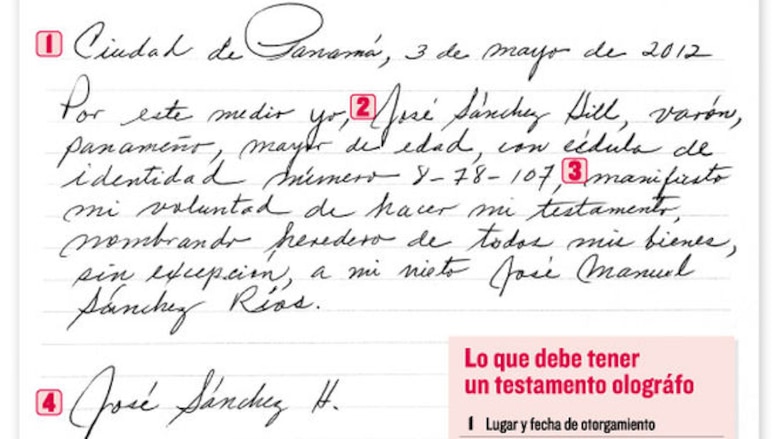 1 Ciudad de Panamá, 3 de mayo de 2012
Por este medio yo, 2 José Sánchez Hill, varón,
panameño, mayor de edad, con cédula de
identidad número 8-78-107, 3 manifiesto
mi voluntad de hacer mi testamento,
nombrando heredero de todos mis bienes,
sin excepción, a mi nieto José Manuel
Sánchez Ríos.
4 José Sánchez H.
Lo que debe tener
un testamento ológráfo
1 Lugar y fecha de otorgamiento